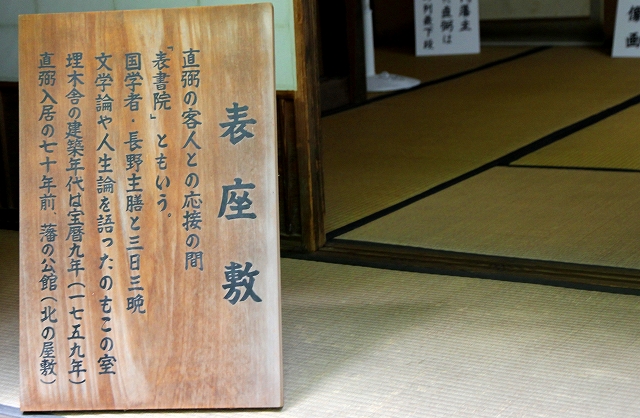 表座敷
直弼の客人との応接の間
「表書院」ともいう。
国学者・長野主膳と三日三晩
文学論や人生論を語ったのもこの室
埋木舎の建築年代は宝暦九年(一七五九年)
直弼入居の七十年前、藩の公館(北の屋敷)